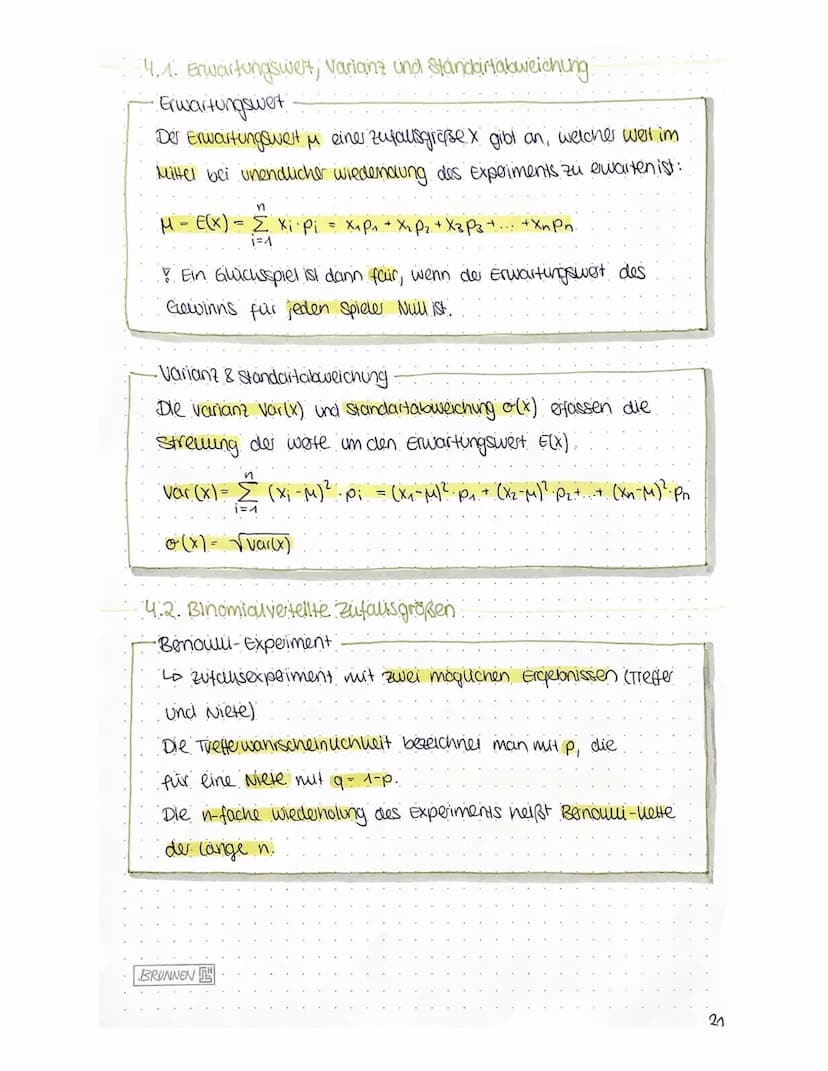 4.1. Erwartungswert, Varianz und Standartabweichung
Erwartungswert
Der Erwartungswert μ einer Zufallsgröße X gibt an, welcher Wert im
Mittel bei unendlicher Wiederholung des Experiments zu erwarten ist:
μ = E(X) = n∑i=1 xi · pi = x1p1 + x2p2 + x3p3 + ... + xnpn
! Ein Glücksspiel ist dann fair, wenn der Erwartungswert des
Gewinns für jeden Spieler Null ist.
Varianz & Standartabweichung
Die Varianz Var(X) und Standartabweichung σ(X) erfassen die
Streuung der Werte um den Erwartungswert E(X).
Var(X) = n∑i=1 (xi-μ)² · pi = (x1-μ)² · p1 + (x2-μ)² · p2 + ... + (xn-μ)² · pn
σ(X) = √Var(X)
4.2. Binomialverteilte Zufallsgrößen
Bernoulli-Experiment
↳ Zufallsexperiment mit zwei möglichen Ergebnissen (Treffer
und Niete)
Die Trefferwahrscheinlichkeit bezeichnet man mit p, die
für eine Niete mit q = 1-p.
Die n-fache Wiederholung des Experiments heißt Bernoulli-Kette
der Länge n.
BRUNNEN
21